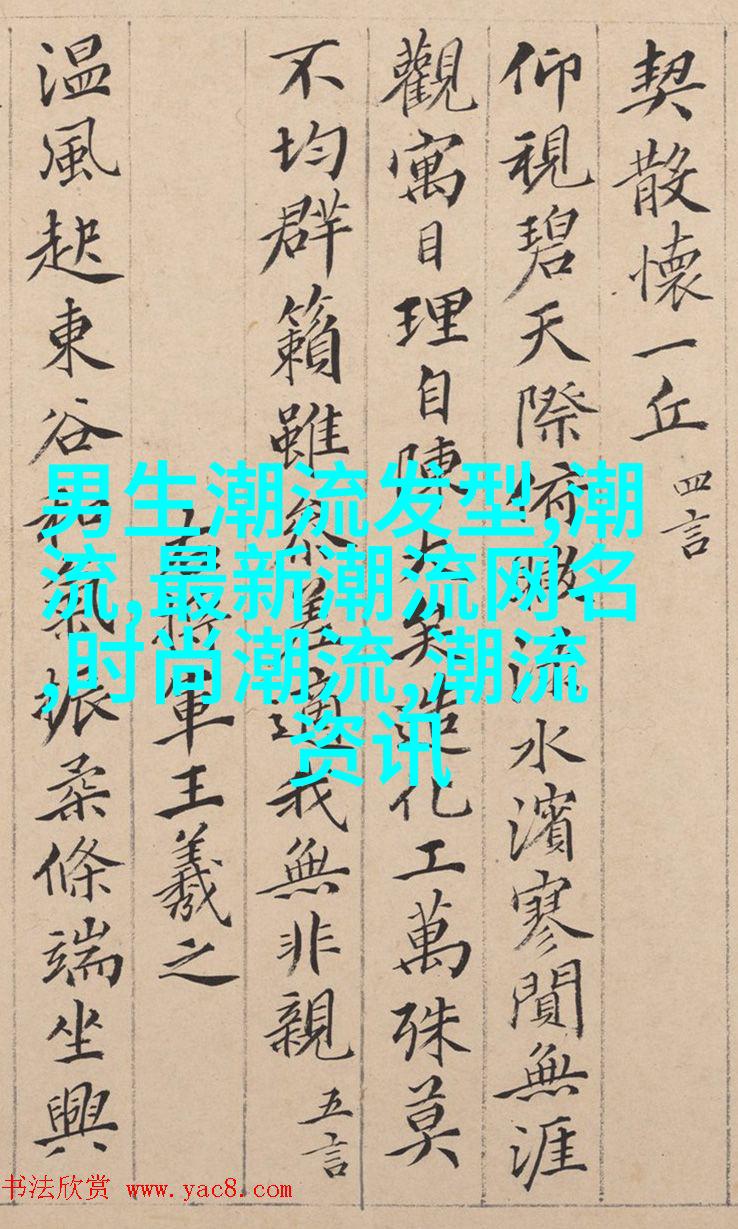 契散懷一丘 四言
仰視碧天際俯瞰淥水濱寥閴無涯
觀寓目理自陳大矣造化工萬殊莫
不均群籟雖參差適我無非親 五言
右將軍王羲之
温風起東谷和氣振柔條端坐興
男生潮流发型,潮
流,最新潮流网名
,时尚潮流,潮流
资讯
书法欣赏 www.yac8.com